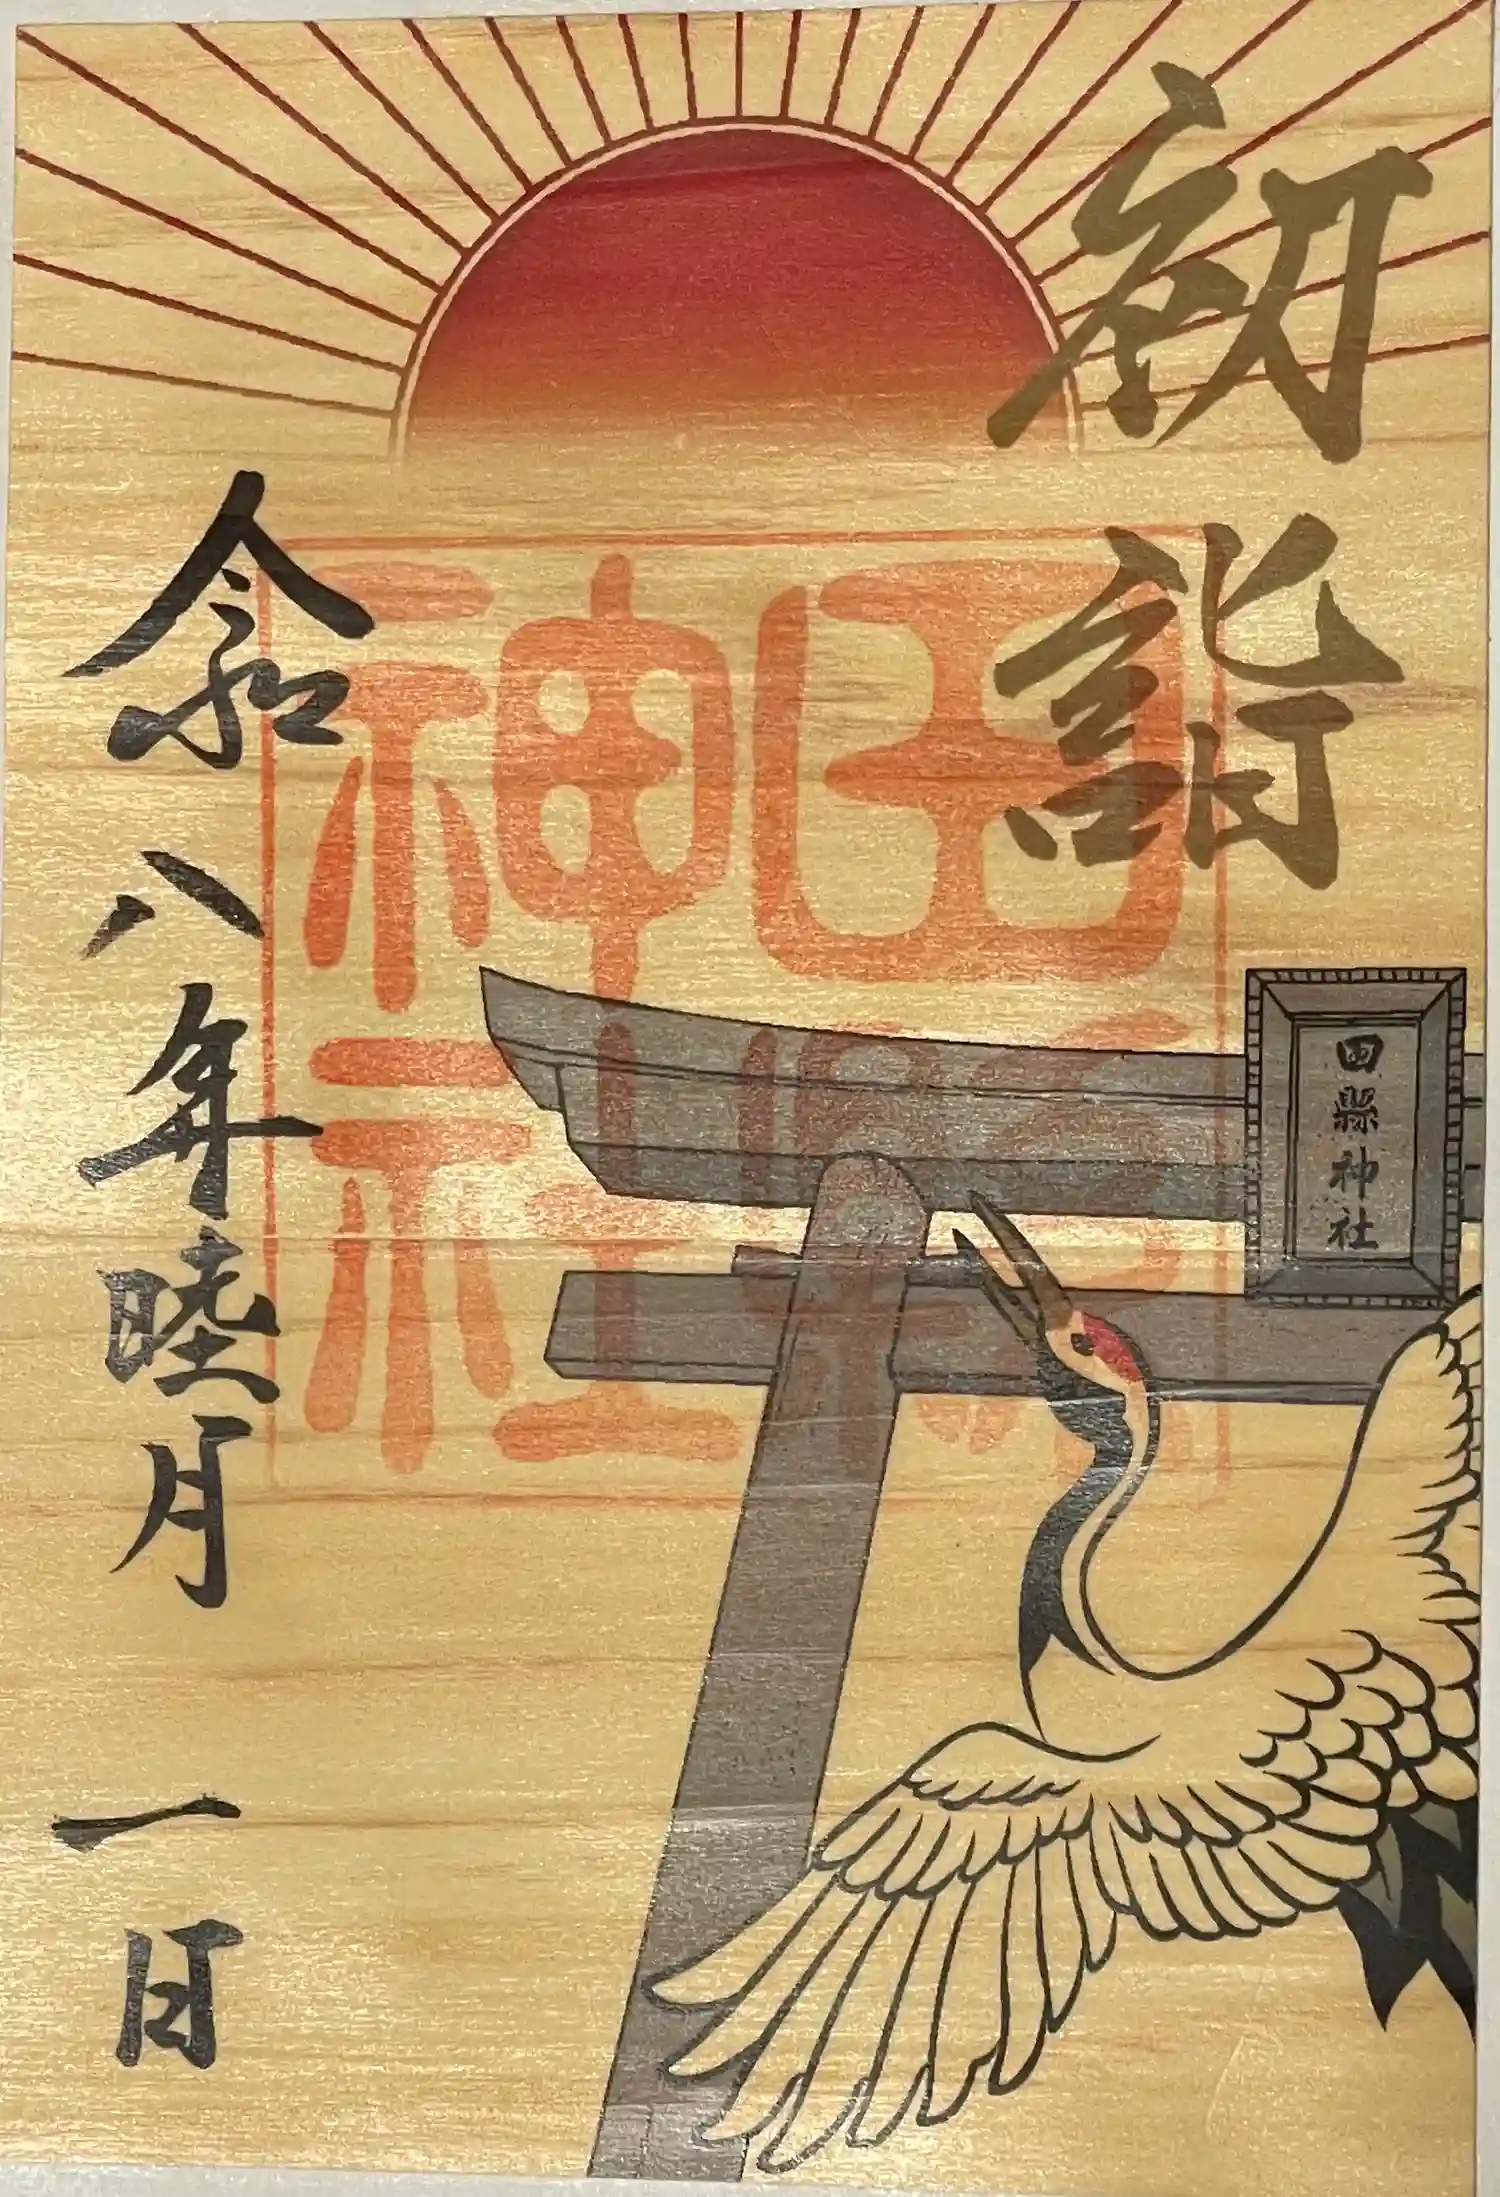 初詣
田縣神社
田縣神社
令和八年睦月一日